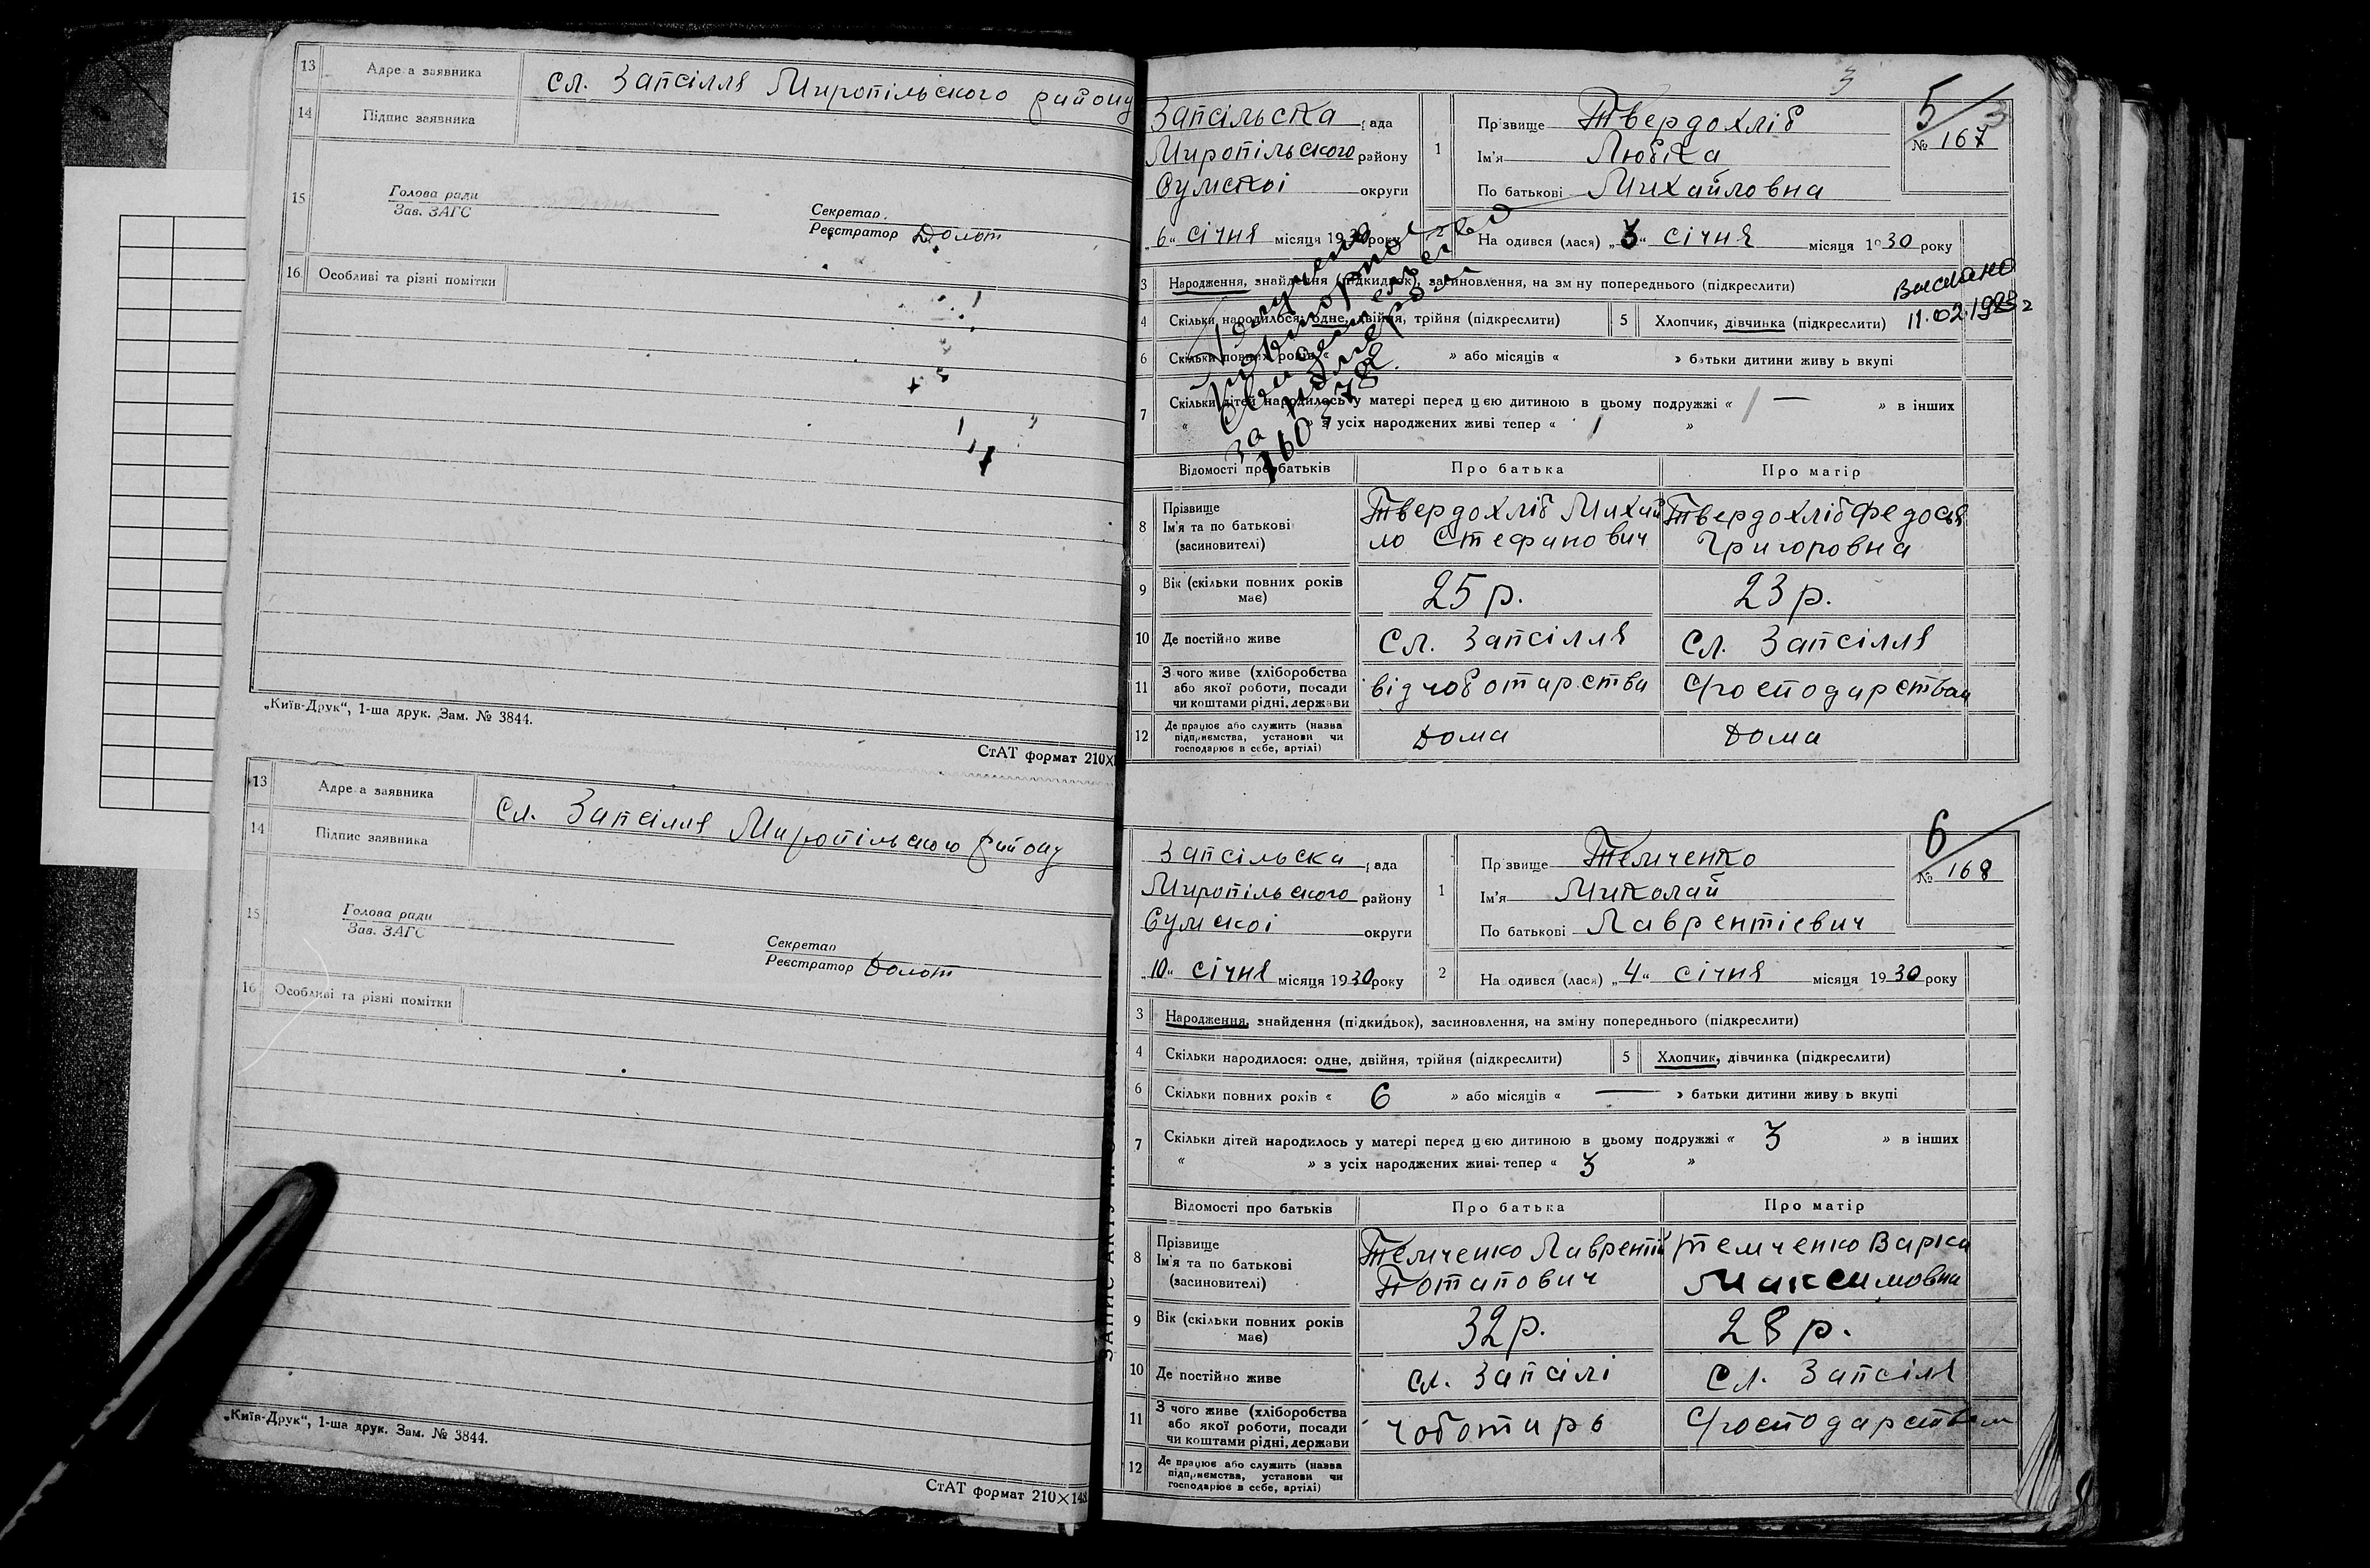 13 Адреса заявника сл. Запсілля Миропільского району
14 Підпис заявника
15 Голова ради
Зав. ЗАГС
Секретар
Реєстратор Долот
16 Особливі та різні помітки
„Київ-Друк“, 1-ша друк. Зам. № 3844.
СтАТ формат 210×
13 Адреса заявника Сл. Запсілля Миропільского району
14 Підпис заявника
15 Голова ради
Зав. ЗАГС
Секретар
Реєстратор Долот
16 Особливі та різні помітки
„Київ-Друк“, 1-ша друк. Зам. № 3844.
СтАТ формат 210×148
3
5/3
№ 167
Запсільска рада
Миропільского району
Сумскоі округи
„6“ січня місяця 1930 року
1 Прізвище Твердохліб
Ім'я Любка
По батькові Михайловна
2 На одився (лася) „3“ січня місяця 1930 року
3 Народження, знайдення (підкидьок), засиновлення, на зміну попереднього (підкреслити)
Выслано
11.02.1983 г
4 Скільки народилося: одне, двійня, трійня (підкреслити) 5 Хлопчик, дівчинка (підкреслити)
6 Скільки повних років « » або місяців « » батьки дитини живуть вкупі
7 Скільки дітей народилось у матері перед цією дитиною в цьому подружжі « — » в інших
« » з усіх народжених живі тепер « 1 »
повторное
за
Відомості про батьків Про батька Про матір
8 Прізвище
Ім'я та по батькові
(засиновителі)
Твердохліб Михай
ло Стефанович
Твердохліб Федосья
Григоровна
9 Вік (скільки повних років має) 25 р. 23 р.
10 Де постійно живе Сл. Запсілля Сл. Запсілля
11 З чого живе (хліборобства
або якої роботи, посади
чи коштами рідні, держави
від чоботарства Господарством
12 Де працює або служить (назва
підприємства, установи чи
господарює в себе, артілі)
Дома Дома
6
№ 168
Запсільска рада
Миропільского району
Сумскоі округи
„10“ січня місяця 1930 року
1 Прізвище Темченко
Ім'я Миколай
По батькові Лаврентіевич
2 На одився (лася) „4“ січня місяця 1930 року
3 Народження, знайдення (підкидьок), засиновлення, на зміну попереднього (підкреслити)
4 Скільки народилося: одне, двійня, трійня (підкреслити) 5 Хлопчик, дівчинка (підкреслити)
6 Скільки повних років « 6 » або місяців « — » батьки дитини живуть вкупі
7 Скільки дітей народилось у матері перед цією дитиною в цьому подружжі « 3 » в інших
« » з усіх народжених живі тепер « 3 »
Відомості про батьків Про батька Про матір
8 Прізвище
Ім'я та по батькові
(засиновителі)
Темченко Лаврентій
Потапович
Темченко Варка
Максимовна
9 Вік (скільки повних років має) 32 р. 28 р.
10 Де постійно живе сл. Запсілі Сл. Запсіля
11 З чого живе (хліборобства
або якої роботи, посади
чи коштами рідні, держави
чоботарь Господарством
12 Де працює або служить (назва
підприємства, установи чи
господарює в себе, артілі)